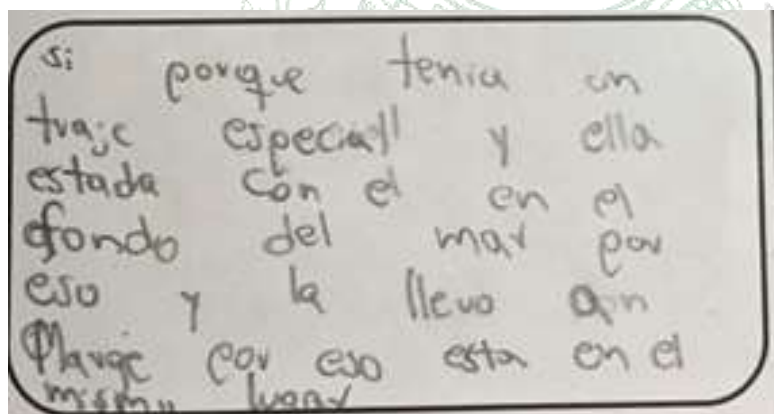 si porque tenia un
traje especial y ella
estada con el en el
fondo del mar por
eso y la llevo an
Marge por eso esta en el
mismu lugar